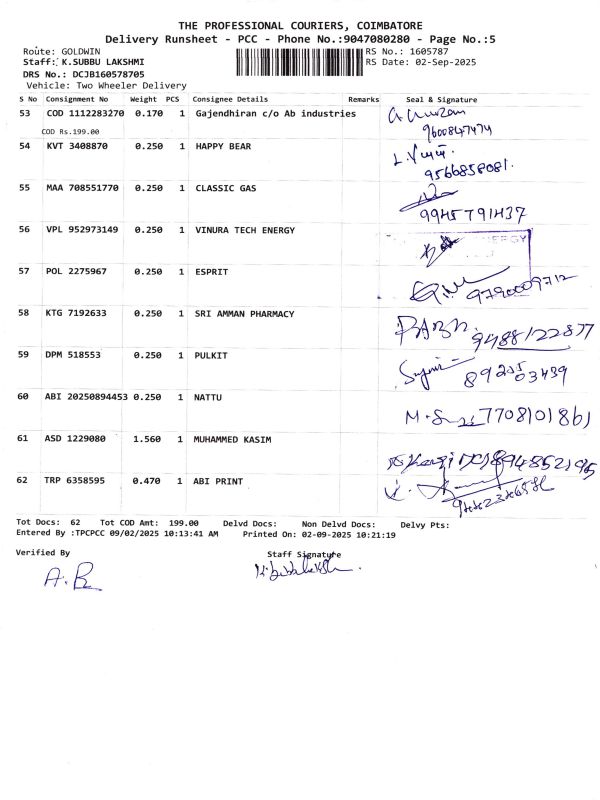 THE PROFESSIONAL COURIERS, COIMBATORE
Delivery Runsheet - PCC - Phone No.:9047080280 - Page No.:5
Route: GOLDWIN RS No.: 1605787
Staff: K.SUBBU LAKSHMI RS Date: 02-Sep-2025
DRS No.: DCJB160578705
Vehicle: Two Wheeler Delivery
S No Consignment No Weight PCS Consignee Details Remarks Seal & Signature
53 COD 1112283270 0.170 1 Gajendhiran c/o Ab industries
COD Rs.199.00 9600847474
54 KVT 3408870 0.250 1 HAPPY BEAR
9566858081.
55 MAA 708551770 0.250 1 CLASSIC GAS
9945791437
56 VPL 952973149 0.250 1 VINURA TECH ENERGY
57 POL 2275967 0.250 1 ESPRIT
9790009712
58 KTG 7192633 0.250 1 SRI AMMAN PHARMACY
9488122877
59 DPM 518553 0.250 1 PULKIT
60 ABI 20250894453 0.250 1 NATTU
7708101861
61 ASD 1229080 1.560 1 MUHAMMED KASIM
62 TRP 6358595 0.470 1 ABI PRINT
Tot Docs: 62 Tot COD Amt: 199.00 Delvd Docs: Non Delvd Docs: Delvy Pts:
Entered By :TPCPCC 09/02/2025 10:13:41 AM Printed On: 02-09-2025 10:21:19
Verified By Staff Signature